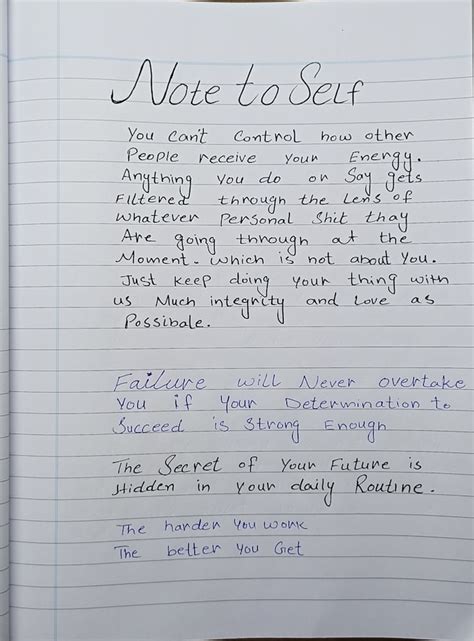 Note to Self
You can't control how other
People receive your Energy.
Anything you do or Say gets
Filtered through the Lens of
whatever Personal Shit thay
Are going through at the
Moment. which is not about You.
Just keep doing your thing with
us Much integrity and Love as
Possibale.
Failure will Never overtake
You if your Determination to
Succeed is Strong Enough
The Secret of Your Future is
Hidden in your daily Routine.
The harder You work
The better You Get